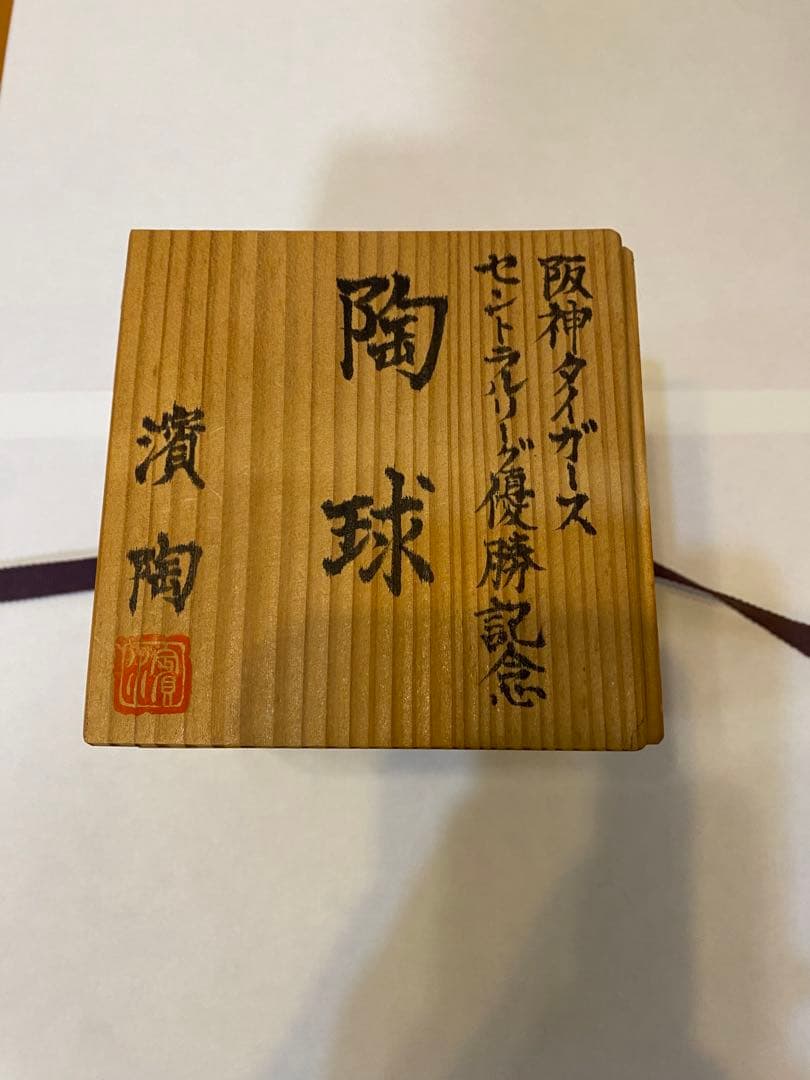 阪神タイガース
セントラルリーグ優勝記念
陶球
濱陶